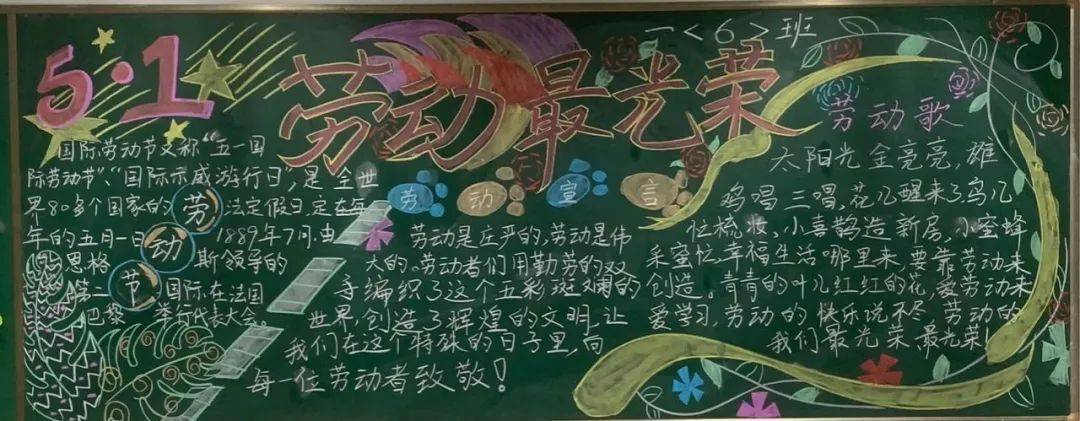 5·1
劳动最光荣
一<6>班
国际劳动节又称“五一国
际劳动节”、“国际示威游行日”,是全世
界80多个国家的法定假日,定在每
年的五月一日 1889年7月,由
恩格斯领导的
第二国际在法国
巴黎举行代表大会
劳动节
劳动宣言
劳动是庄严的,劳动是伟
大的。劳动者们用勤劳的双
手编织了这个五彩斑斓的
世界,创造了辉煌的文明,让
我们在这个特殊的日子里,向
每一位劳动者致敬!
劳动歌
太阳光金亮亮,雄
鸡唱三唱,花儿醒来了,鸟儿
忙梳妆、小喜鹊造新房,小蜜蜂
采蜜忙,幸福生活哪里来,要靠劳动来
创造。青青的叶儿红红的花,爱劳动来
爱学习,劳动的快乐说不尽,劳动的
我们最光荣,最光荣!